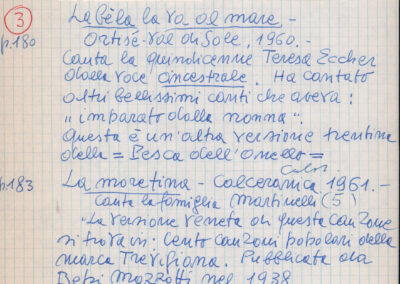 3
p.180 La bèla la va al mare –
Ortisé – Val di Sole, 1960. –
Canta la quindicenne Teresa Eccher
dalla voce ancestrale. Ha cantato
altri bellissimi canti che aveva:
"imparato dalla nonna".
Questa è un'altra versione trentina
della = Pesca dell'anello =
p.183 La moretina – Calceranica 1961. –
Canta la famiglia Martinelli (5)
"La versione veneta di questa canzone
si trova in: Cento canzoni popolari della
marca Trevigiana. Pubblicata da
nel 1938